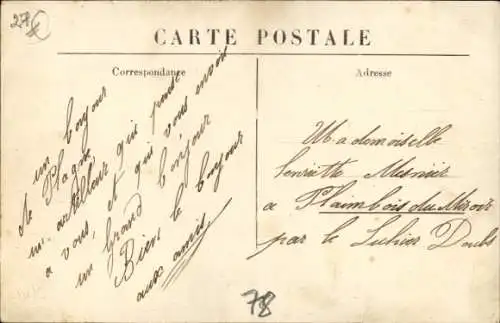 27 €
CARTE POSTALE
Correspondance
un bonjour
de Plagne
a vous, et qui vous envoi
un Grand bonjour
Bien le bonjour
aux amis
Adresse
Mademoiselle
henriette Mesnier
a Plaimbois du Miroir
par le Luhier Doubs
78